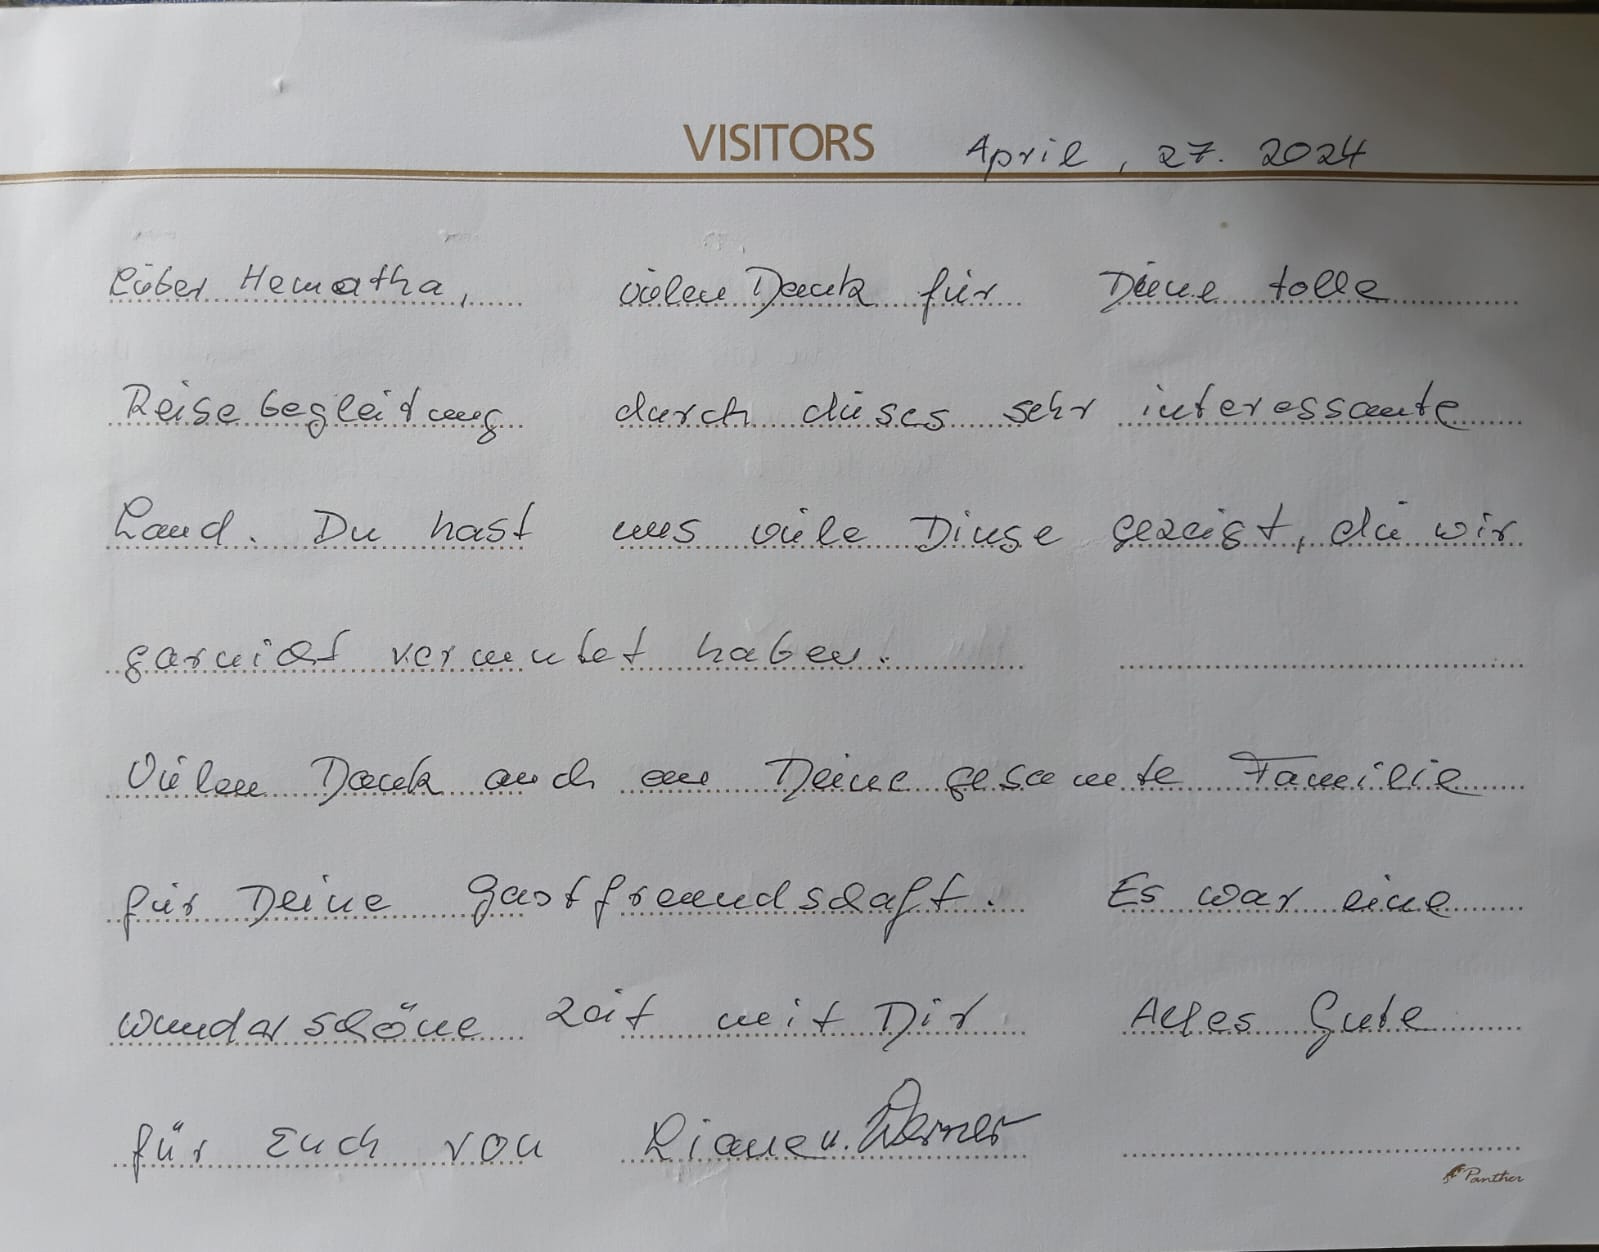 VISITORS April, 27. 2024
Lieber Hematha, vielen Dank für Deine tolle
Reisebegleitung durch dieses sehr interessante
Land. Du hast uns viele Dinge gezeigt, die wir
garnicht vermutet haben.
Vielen Dank auch an Deine gesamte Familie
für Deine Gastfreundschaft. Es war eine
wunderschöne Zeit mit Dir Alles Gute
für Euch von Liane u. Werner
Panther